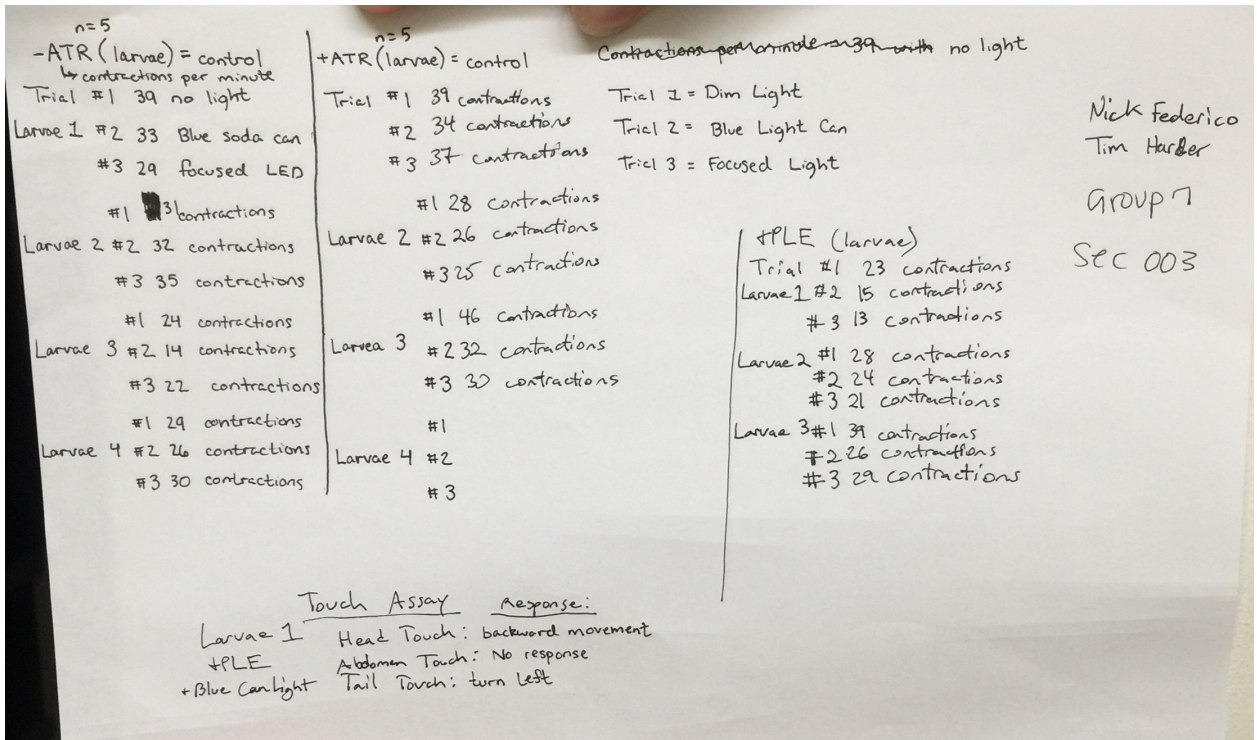 n=5
-ATR (larvae) = control
↳ contractions per minute
Trial #1 39 no light
Larvae 1 #2 33 Blue soda can
#3 29 focused LED
#1 31 contractions
Larvae 2 #2 32 contractions
#3 35 contractions
#1 24 contractions
Larvae 3 #2 14 contractions
#3 22 contractions
#1 29 contractions
Larvae 4 #2 26 contractions
#3 30 contractions
n=5
+ATR (larvae) = control
Trial #1 39 contractions
#2 34 contractions
#3 37 contractions
#1 28 contractions
Larvae 2 #2 26 contractions
#3 25 contractions
#1 46 contractions
Larvea 3 #2 32 contractions
#3 30 contractions
#1
Larvae 4 #2
#3
Contractions per minute = 39 with no light
Trial 1 = Dim Light
Trial 2 = Blue Light Can
Trial 3 = Focused Light
Nick Federico
Tim Harder
Group 7
Sec 003
+PLE (larvae)
Trial #1 23 contractions
Larvae 1 #2 15 contractions
#3 13 contractions
Larvae 2 #1 28 contractions
#2 24 contractions
#3 21 contractions
Larvae 3 #1 39 contractions
#2 26 contractions
#3 29 contractions
Touch Assay Response:
Larvae 1 Head Touch: backward movement
+PLE Abdomen Touch: No response
+Blue Can Light Tail Touch: turn Left